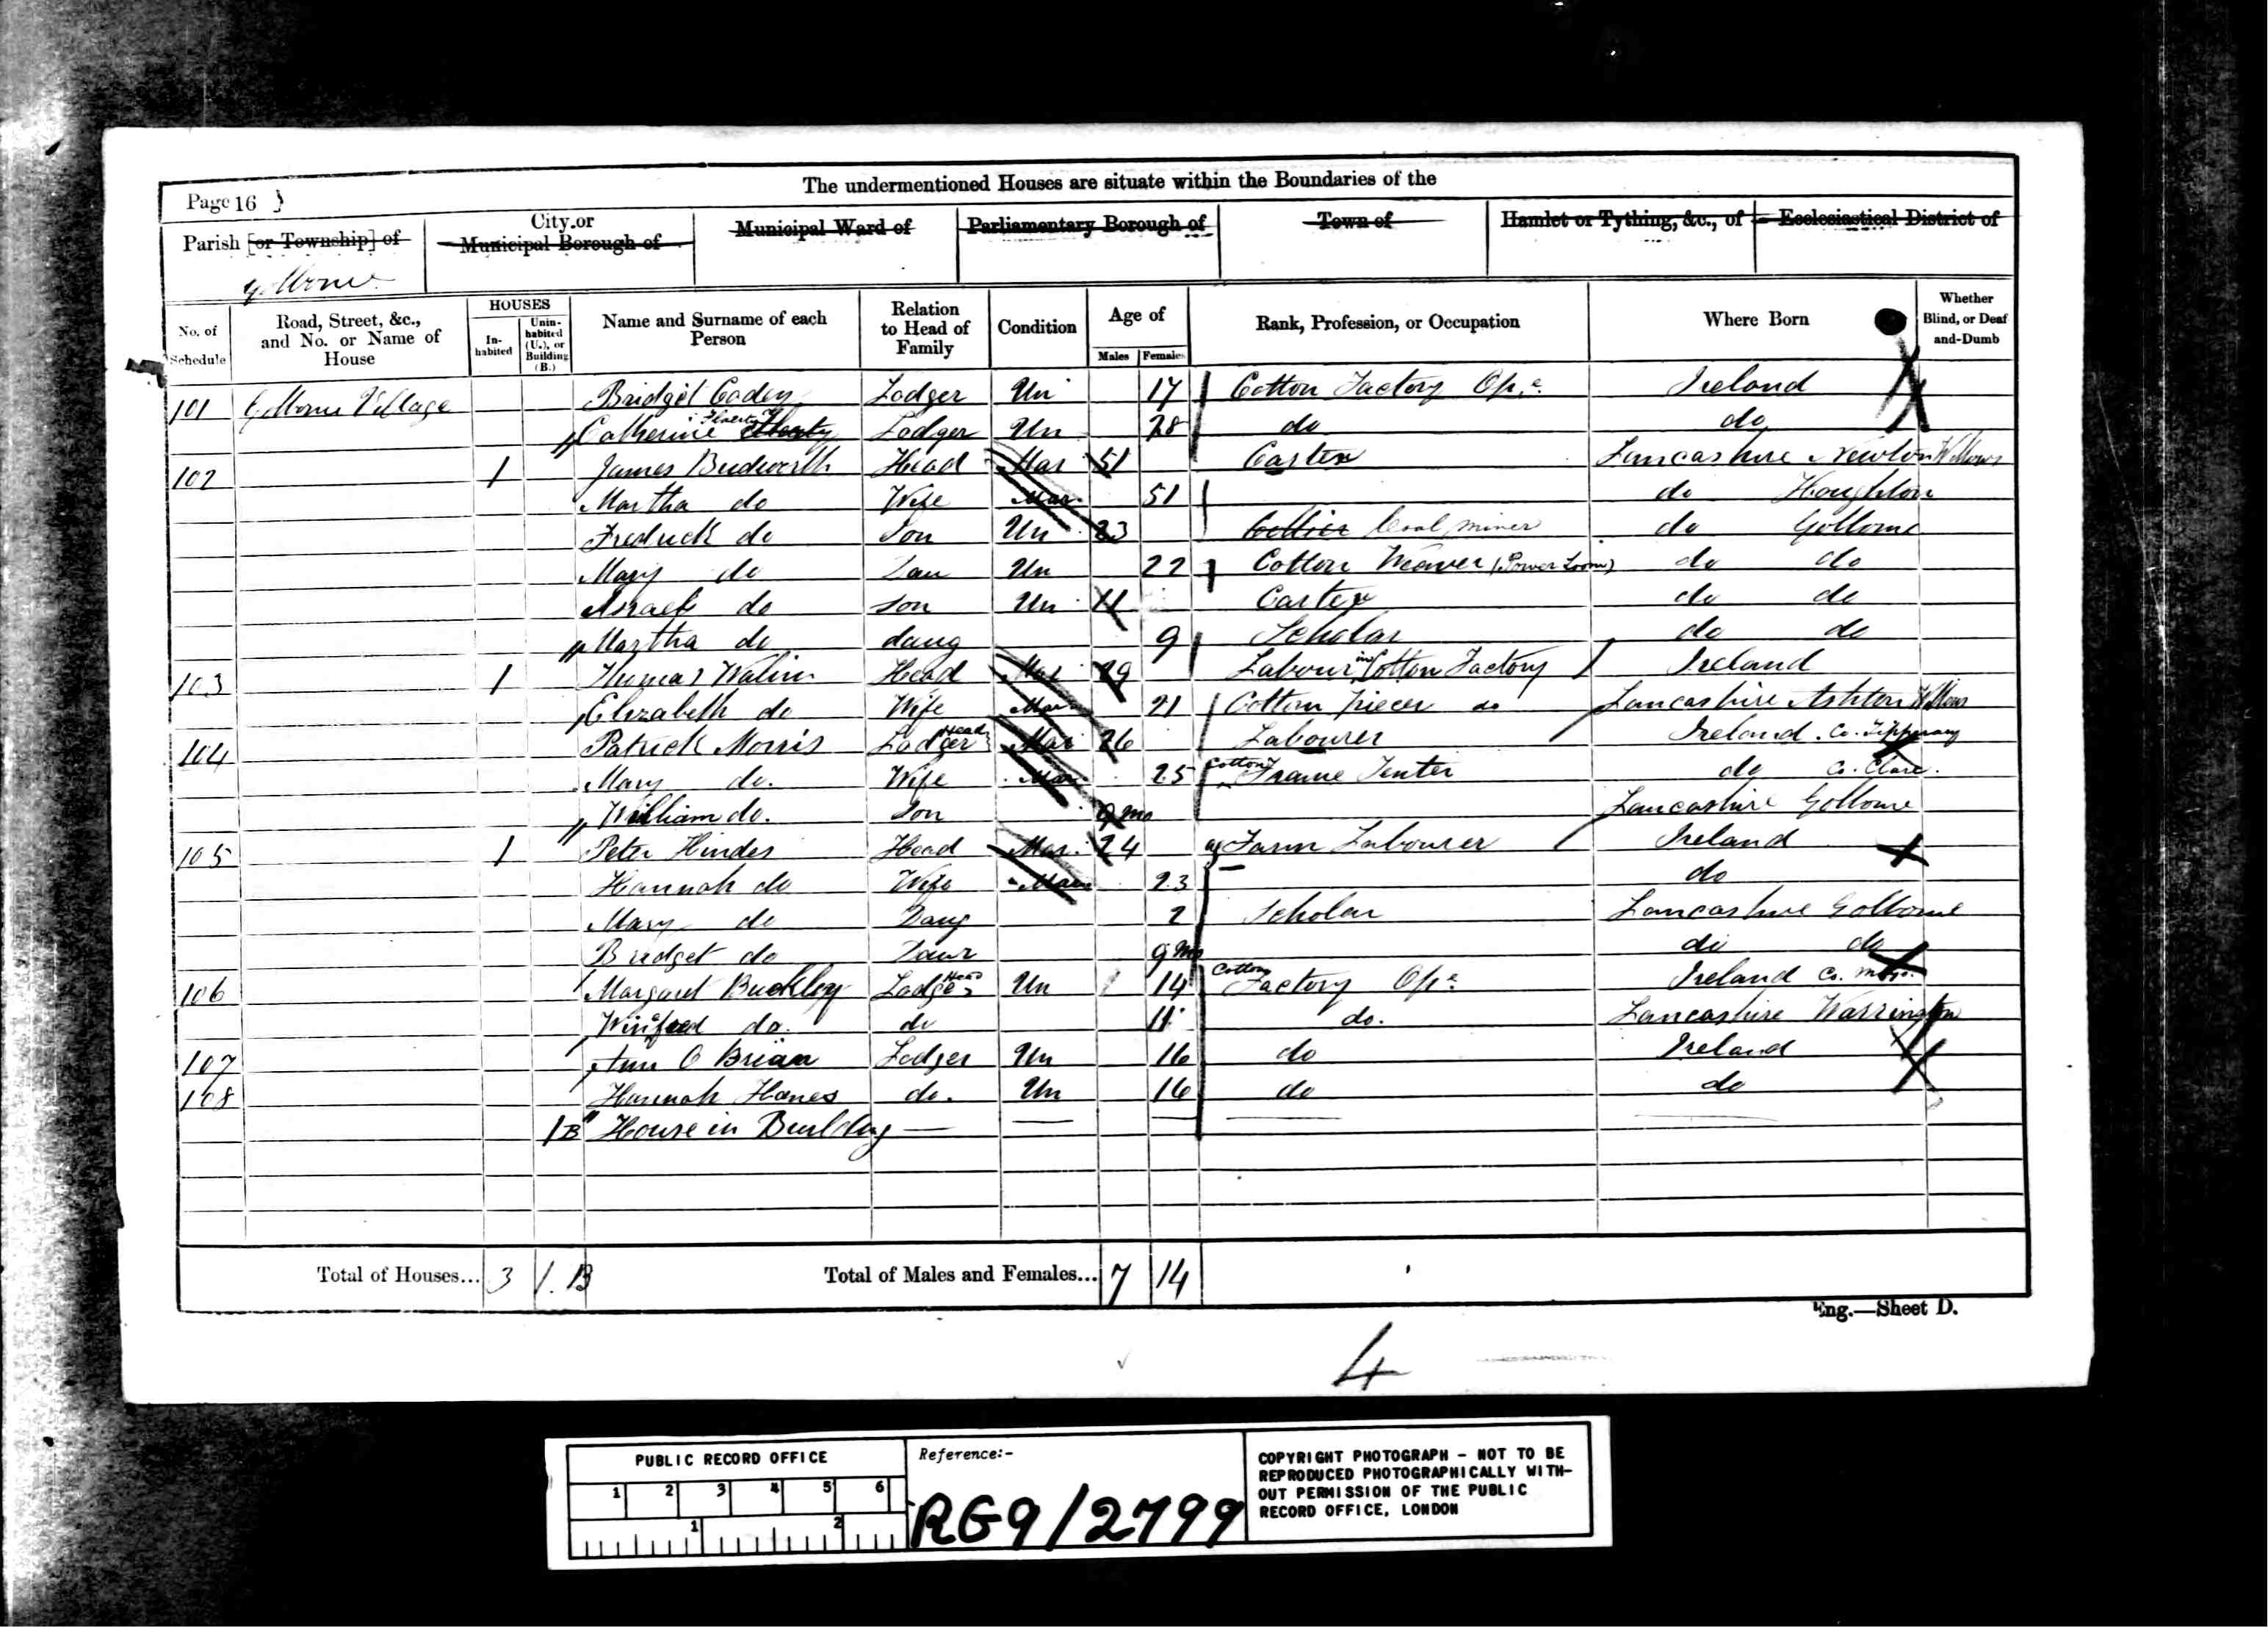 The undermentioned Houses are situate within the Boundaries of the
Page 16 }
Parish [or Township] of
City or Municipal Borough of
Municipal Ward of
Parliamentary Borough of
Town of
Hamlet or Tything, &c., of
Ecclesiastical District of
Golborne
No. of Schedule
Road, Street, &c., and No. or Name of House
HOUSES
In-habited
Unin-habited (U.), or Building (B.)
Name and Surname of each Person
Relation to Head of Family
Condition
Age of
Males
Females
Rank, Profession, or Occupation
Where Born
Whether Blind, or Deaf and-Dumb
101 Golborne Village Bridget Cadey Lodger Un 17 Cotton Factory Ope Ireland
Catherine Flaerty Lodger Un 28 do do
102 1 James Budworth Head Mar 51 Carter Lancashire Newton Willows
Martha do Wife Mar 51 do Houghton
Fredrick do Son Un 23 Collier Coal miner do Golborne
Mary do Dau Un 22 Cotton Weaver (Power Loom) do do
do Son Un 11 Carter do do
Martha do daug 9 Scholar do do
103 1 Thomas Head Mar 29 Labour in Cotton Factory Ireland
Elizabeth do Wife Mar 21 Cotton Piecer do Lancashire Ashton Willows
104 Patrick Morris Lodger Head Mar 26 Labourer Ireland. Co. Tipperary
Mary do. Wife Mar 25 Cotton Frame Tenter do Co. Clare.
William do. Son 9 mo Lancashire Golborne
105 1 Peter Hindes Head Mar. 24 Farm Labourer Ireland
Hannah do Wife Mar 23 do
Mary do Daug 2 Scholar Lancashire Golborne
Bridget do 9 mo do do
106 Margaret Buckley Lodger Head Un 14 Cotton Factory Ope Ireland Co. Mayo
Winifred do. do 11 do. Lancashire Warrington
107 Ann O Brian Lodger Un 16 do Ireland
108 Hannah Hanes do. Un 16 do do
1 B House in Building —
Total of Houses... 3 1. B
Total of Males and Females... 7 14
Eng.—Sheet D.
4
PUBLIC RECORD OFFICE
1 2 3 4 5 6
1 2
Reference:-
RG9/2799
COPYRIGHT PHOTOGRAPH - NOT TO BE
REPRODUCED PHOTOGRAPHICALLY WITH-
OUT PERMISSION OF THE PUBLIC
RECORD OFFICE, LONDON